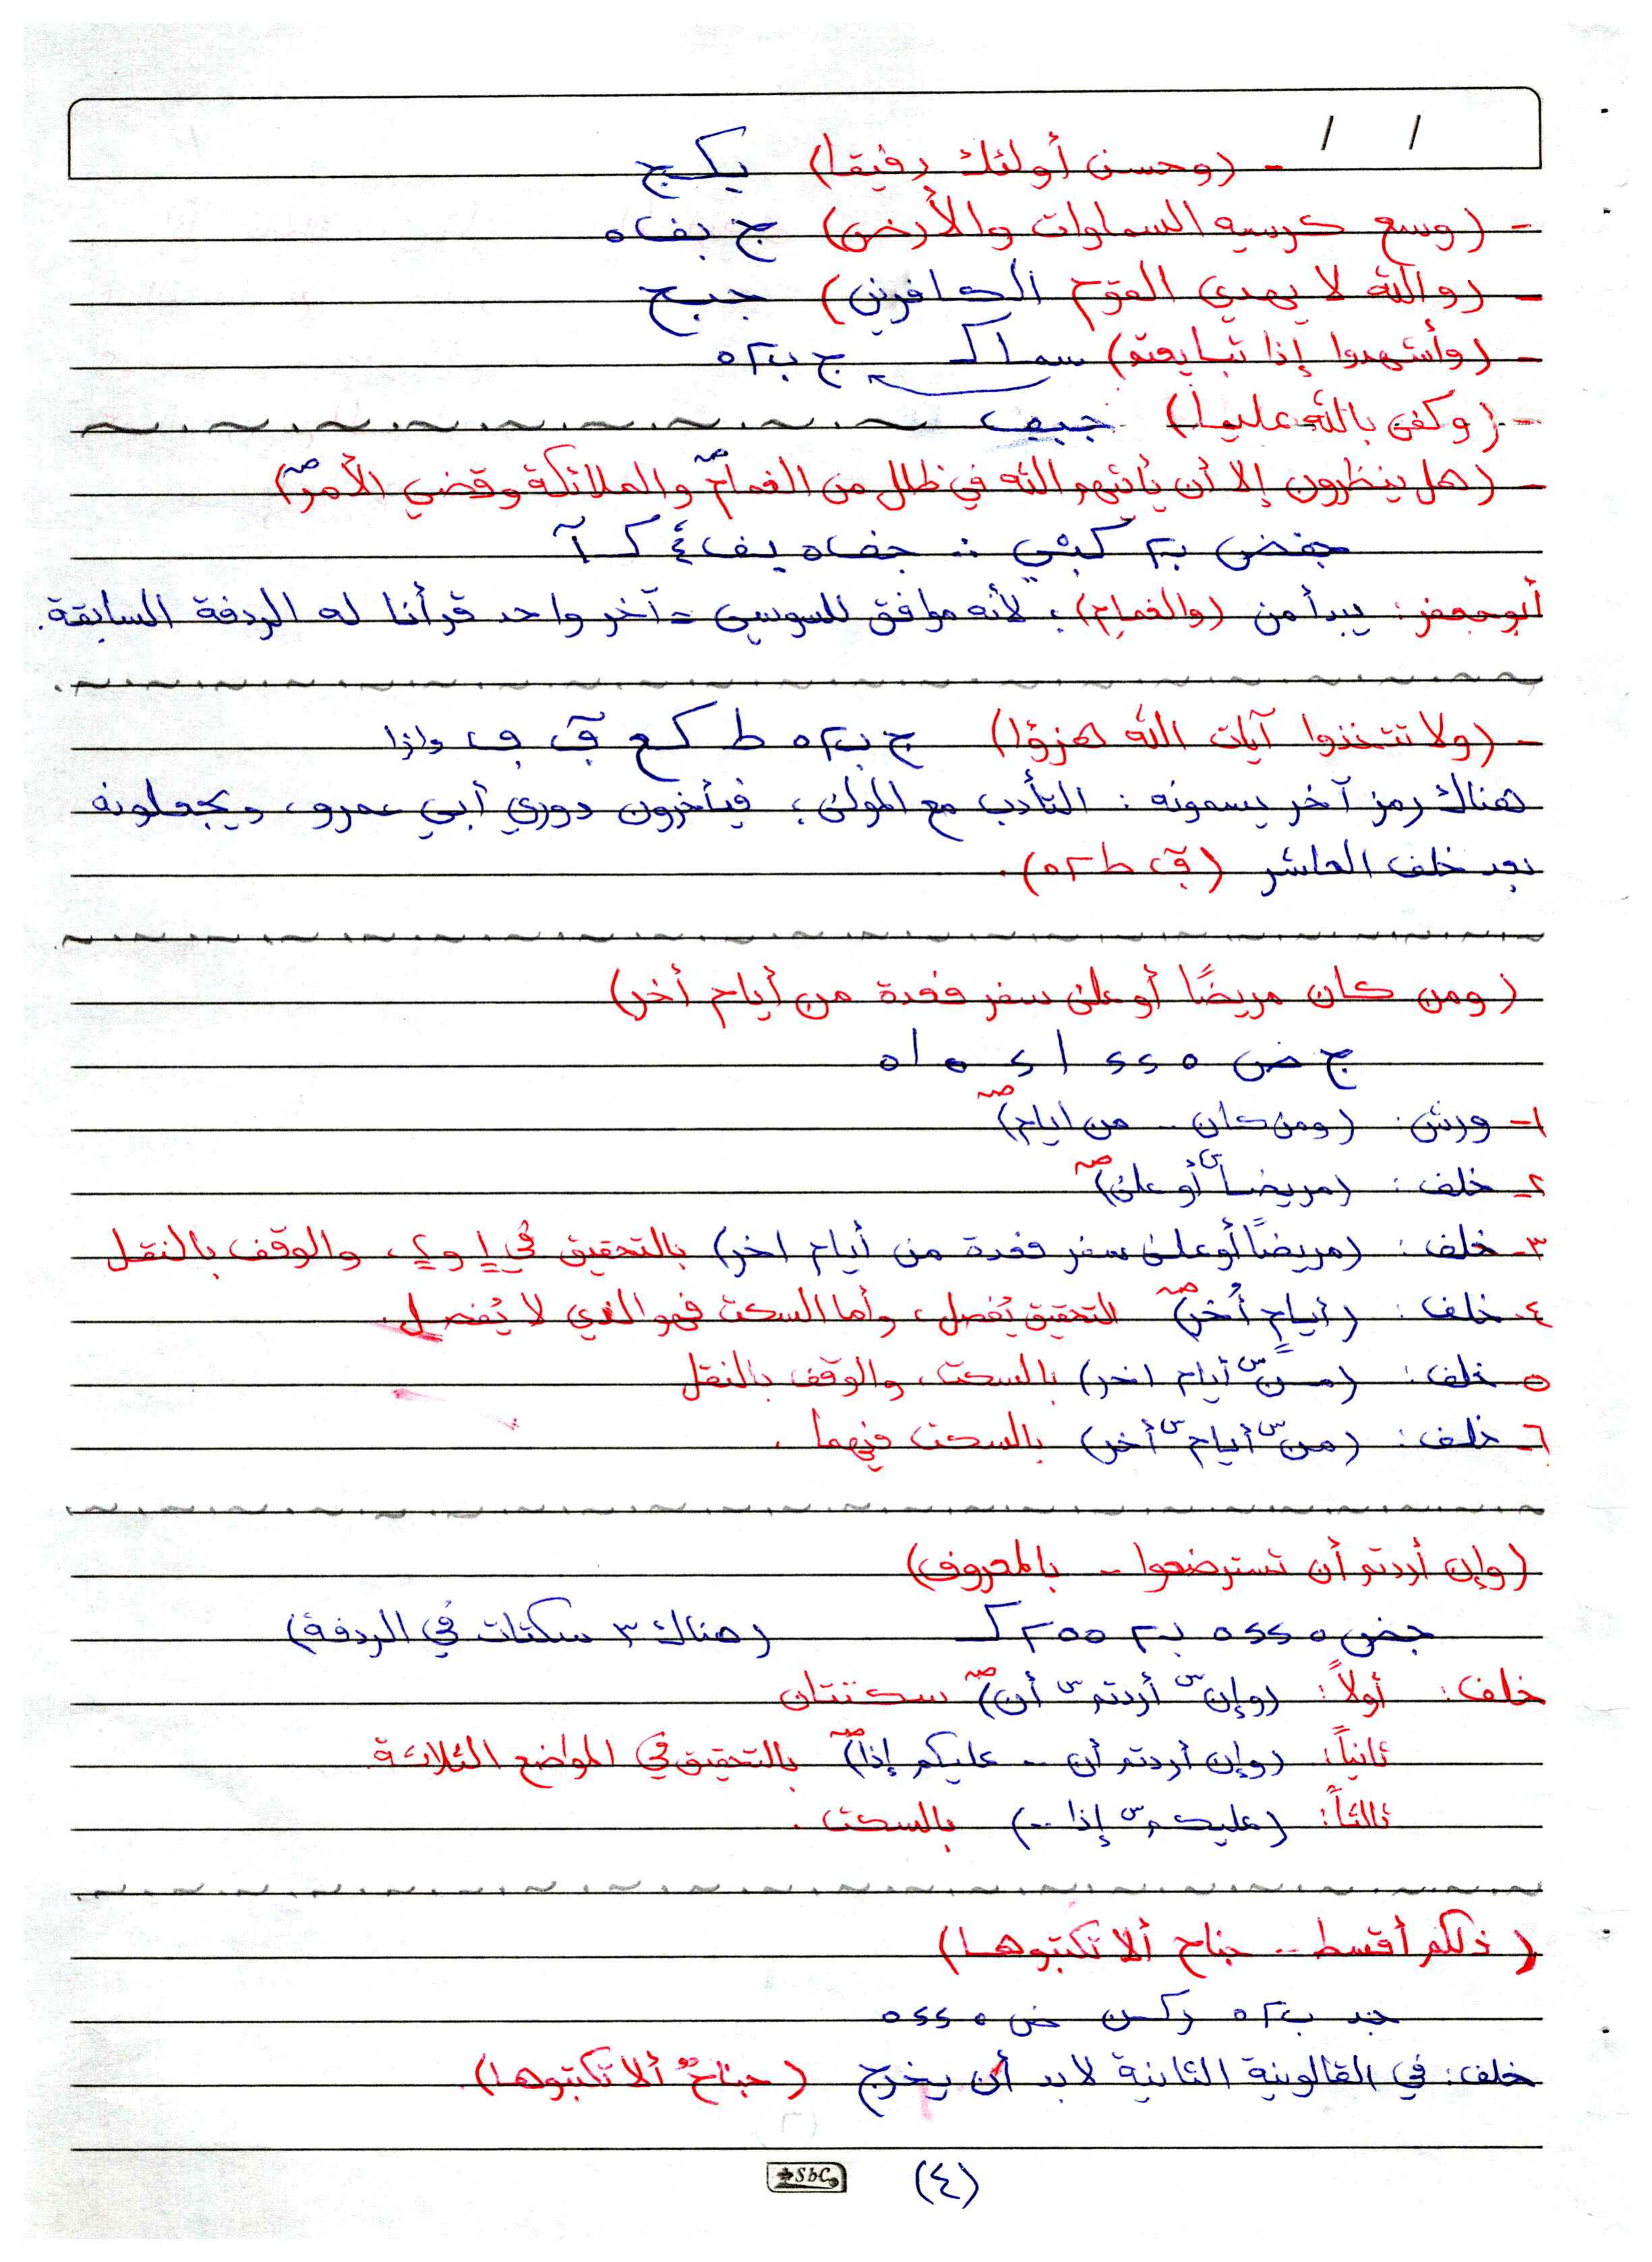 / /
- (وحسن أولئك رفيقا) يكج
- (وسع كرسيه السماوات والأرض) ج بف٥
- (والله لا يهدي القوم الكافرين) جبج
- (وأشهدوا إذا تبايعتم) سما ك ج ب٢٥
- (وكفى بالله عليما)
- (هل ينظرون إلا أن يأتيهم الله في ظلل من الغمام صـ والملائكة وقضي الأمر صـ)
أبوجعفر: يبدأ من (والغمام)؛ لأنه موافق للسوسي = آخر واحد قرأنا له الردفة السابقة.
- (ولا تتخذوا آيات الله هزؤا) ج ب٢٥ ط كع ق ف وإذا
هناك رمز آخر يسمونه: التأدب مع المولى؛ فيأخرون دوري أبي عمرو، ويجعلونه
بعد خلف العاشر (ق ط٢٥).
(ومن كان مريضًا أو على سفر فعدة من أيام أخر)
ج ض ٥ ٤٤ ١ ٤ ٥ ١٥
١- ورش: (ومن كان .. من ايام) صـ
٢- خلف: (مريضاً س أو على) صـ
٣- خلف: (مريضًا أو على سفر فعدة من أيام اخر) بالتحقيق في ١ و٢، والوقف بالنقل
٤- خلف: (أيامٍ أُخر) صـ التحقيق يُفصل، وأما السكت فهو الذي لا يُفصل.
٥- خلف: (من س أيام اخر) بالسكت، والوقف بالنقل
٦- خلف: (من س أيام س أخر) بالسكت فيهما.
(وإن أردتم أن تسترضعوا .. بالمعروف)
جض ٥ ٤٤ ٥ ب٢ ٢٥٥ ك (هناك ٣ سكتات في الردفة)
خلف: أولاً: (وإن س أردتم س أن) صـ سكتتان
ثانياً: (وإن أردتم أن .. عليكم إذا) صـ بالتحقيق في المواضع الثلاثة
ثالثاً: (عليكم س إذا ..) بالسكت.
(ذلكم أقسط .. جناح ألا تكتبوها)
خلف: في القالونية الثانية لابد أن يخرج (جناحٌ ألا تكتبوها).
SbC
(٤)